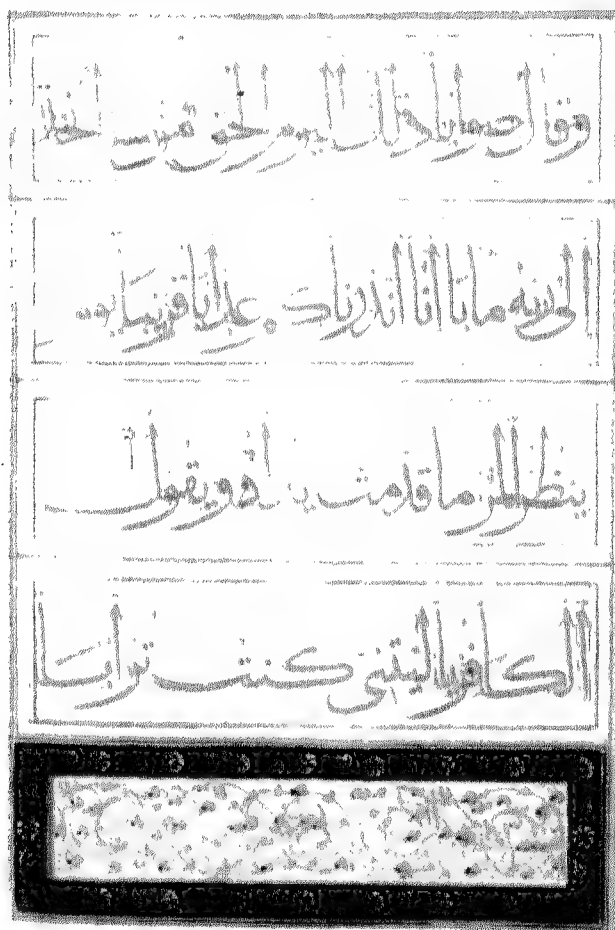 وقال صوابا ذلك اليوم الحق فمن اتخذ
الى ربه مابا انا انذرناكم عذابا قريبا
ينظر المر ما قدمت ويقول
الكافر ياليتنى كنت ترابا